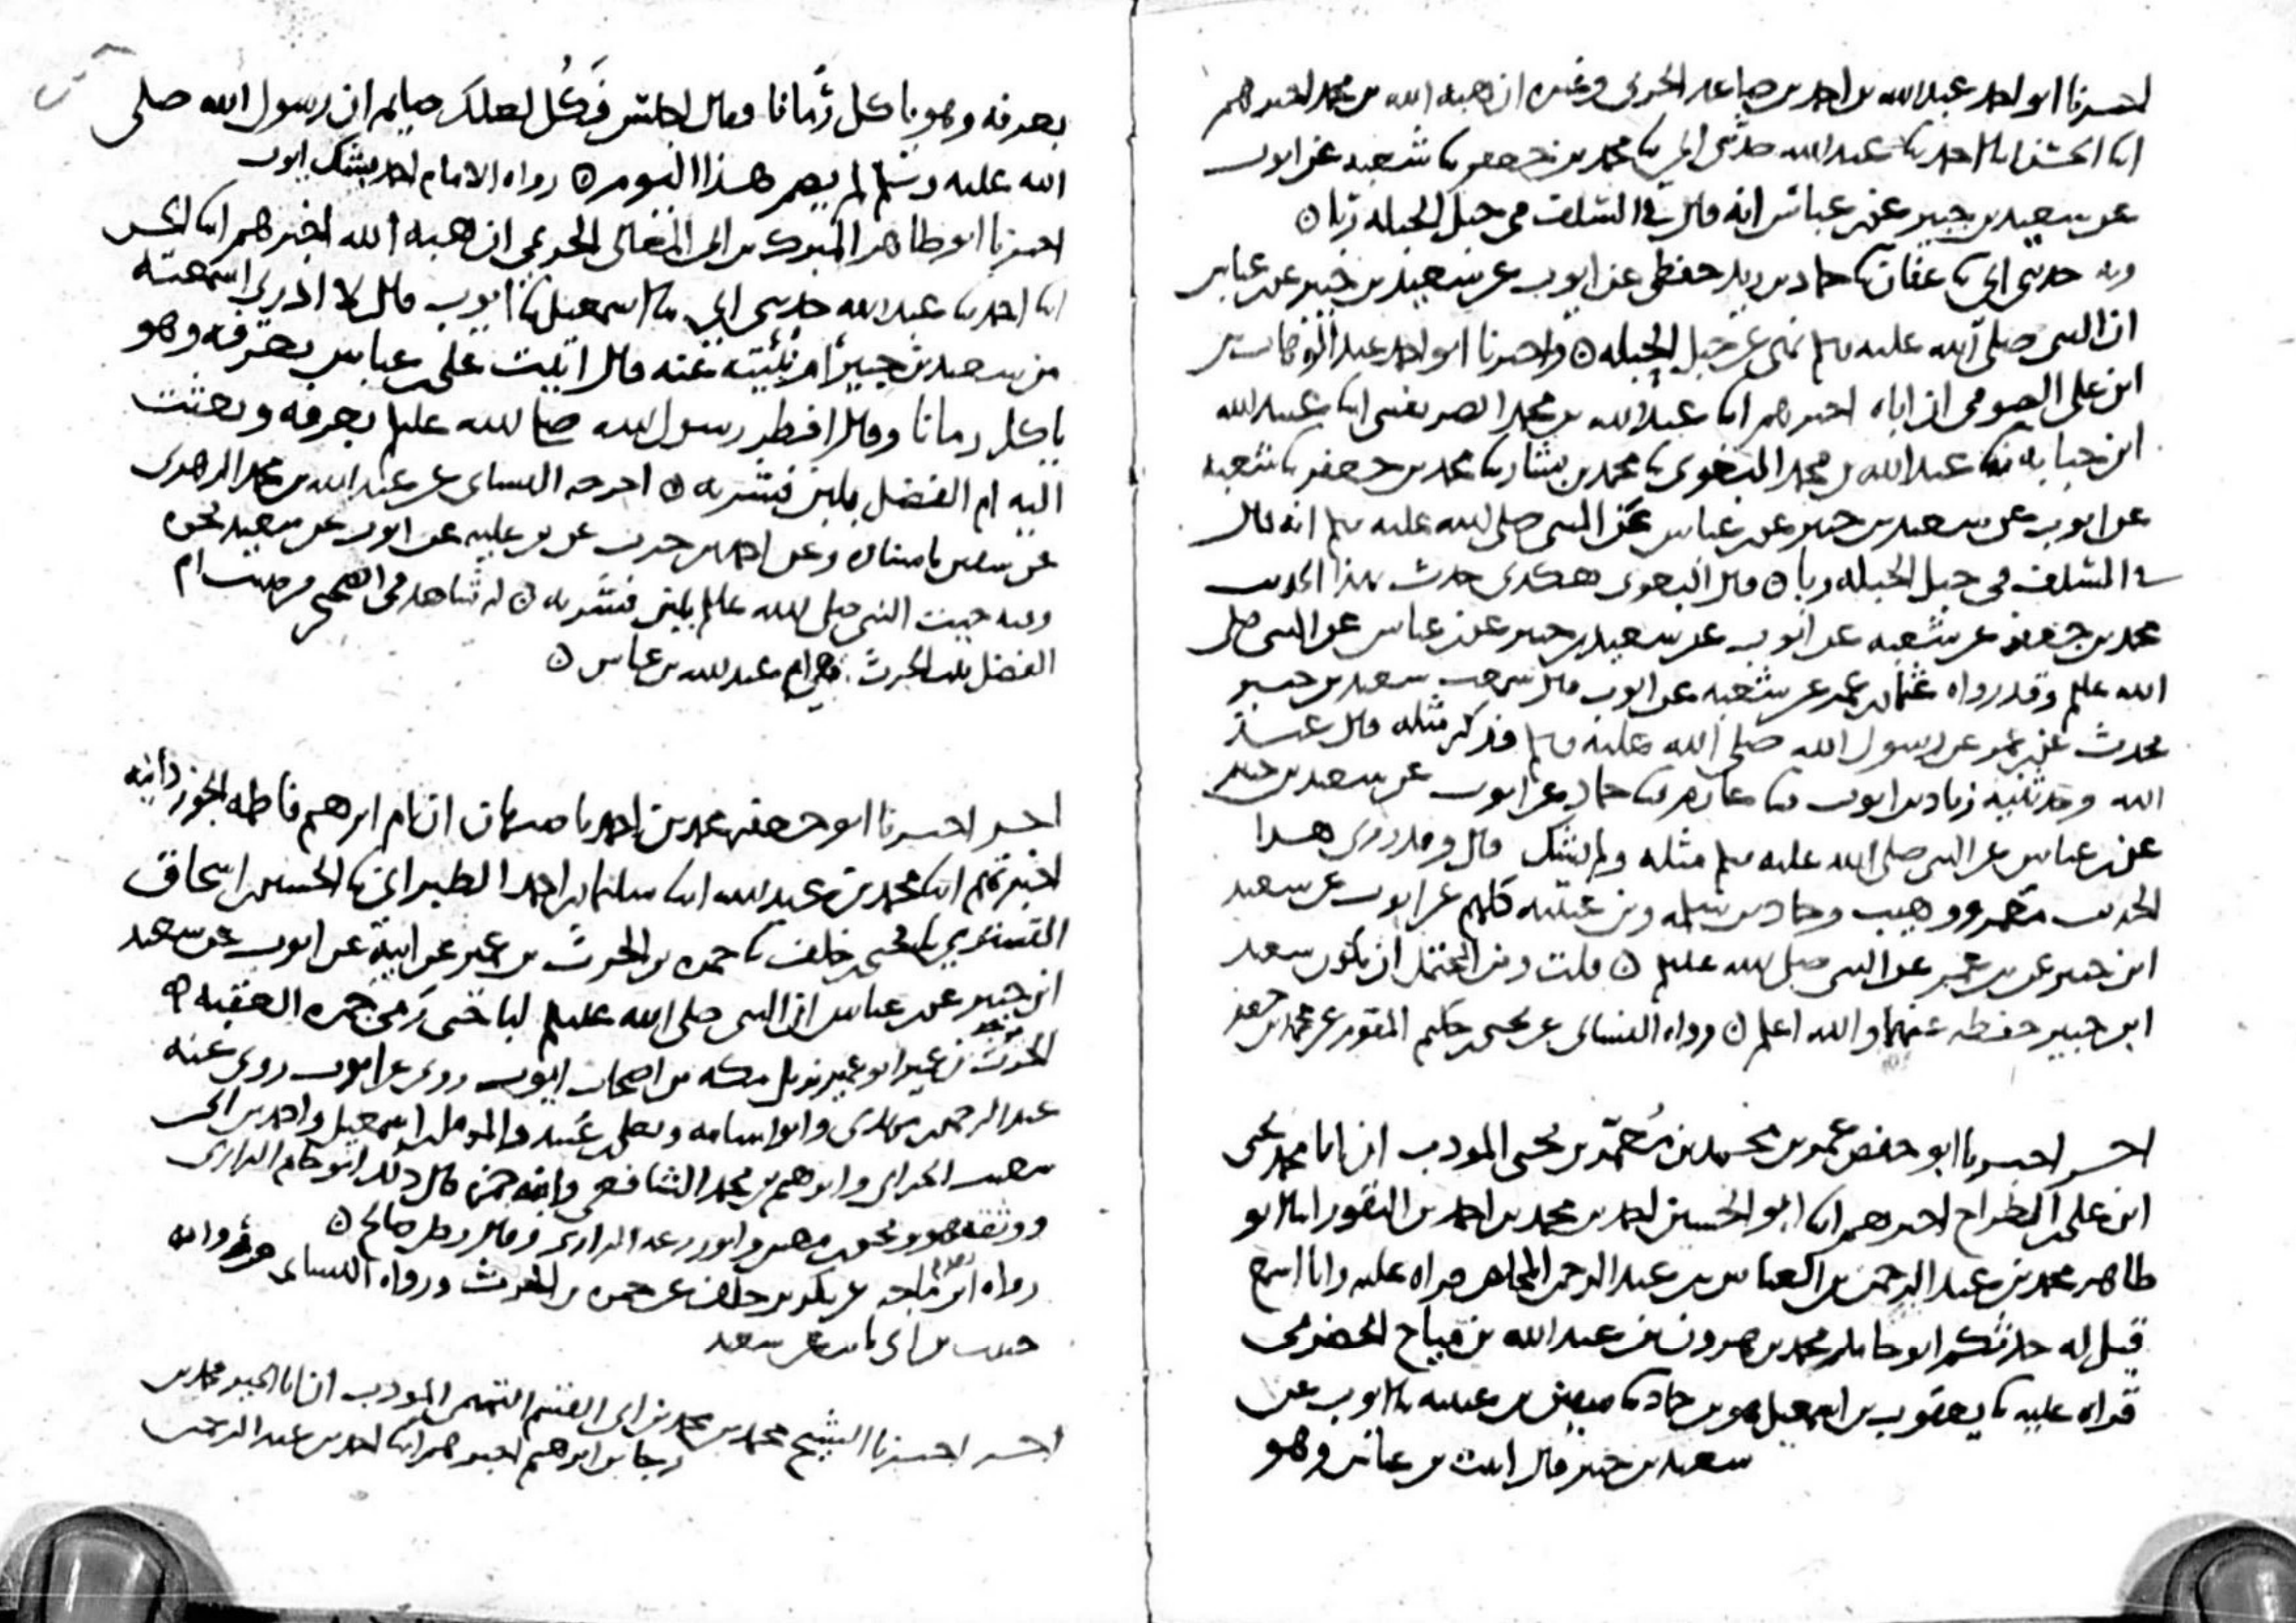 اخبرنا ابو احمد عبد الله بن احمد بن صاعد الحربي وغيره ان هبة الله بن محمد اخبرهم
ابنا الحسن ابنا احمد ثنا عبد الله حدثني ابي ثنا محمد بن جعفر ثنا شعبه عن ايوب
عن سعيد بن جبير عن بن عباس انه قال في السلف في حبل الحبله ربا ۝
وبه حدثني ابي ثنا عفان ثنا حماد بن زيد حفظي عن ايوب عن سعيد بن جبير عن بن عباس
ان النبي صلى الله عليه وسلم نهى عن حبل الحبله ۝ واخبرنا ابو احمد عبد الوهاب بن
ابن علي الصوفي ان اباه اخبرهم ابنا عبد الله بن محمد الصريفيني ابنا عبيد الله
ابن حبابه ثنا عبد الله بن محمد البغوي ثنا محمد بن بشار ثنا محمد بن جعفر ثنا شعبه
عن ايوب عن سعيد بن جبير عن بن عباس عن النبي صلى الله عليه وسلم انه قال
في السلف في حبل الحبله ربا ۝ قال البغوي هكذى حدث بهذا الحديث
محمد بن جعفر عن شعبه عن ايوب عن سعيد بن جبير عن بن عباس عن النبي صلى
الله عليه وسلم وقد رواه عثمان بن عمر عن شعبه عن ايوب قال سمعت سعيد بن جبير
يحدث عن بن عمر عن رسول الله صلى الله عليه وسلم فذكر مثله قال عبد
الله وحدثنيه زياد بن ايوب ثنا عارم ثنا حماد عن ايوب عن سعيد بن جبير
عن بن عباس عن النبي صلى الله عليه وسلم مثله ولم يشك قال وقد روى هذا
الحديث معمر ووهيب وحماد بن سلمه وبن عليه كلهم عن ايوب عن سعيد
ابن جبير عن بن عمر عن النبي صلى الله عليه وسلم ۝ قلت ومن المحتمل ان يكون سعيد
ابن جبير حفظه عنهما والله اعلم ۝ رواه النسائي عن يحيى بن حكيم المقوم عن محمد بن جعفر
اخر اخبرنا ابو حفص عمر بن محمد بن معمر بن يحيى المودب ان ابا محمد يحيى
ابن علي بن الطراح اخبرهم ابنا ابو الحسين احمد بن محمد بن احمد بن النقور ابنا ابو
طاهر محمد بن عبد الرحمن بن العباس بن عبد الرحمن المخلص قراه عليه وانا اسمع
قيل له حدثكم ابو حامد محمد بن هرون بن عبد الله بن مياح الحضرمي
قراه عليه ثنا يعقوب بن اسمعيل بن حماد ثنا سفين بن عيينه ثنا ايوب عن
سعيد بن جبير قال اتيت بن عباس وهو
بعرفه وهو ياكل رُمانا فقال اجلس فَكُل لعلك صايم ان رسول الله صلى
الله عليه وسلم لم يصم هذا اليوم ۝ رواه الامام احمد بشك ايوب
اخبرنا ابو طاهر المبرك بن ابي المعالي الحريمي ان هبه الله اخبرهم ابنا الحسن
ابنا احمد ثنا عبد الله حدثني ابي ثنا اسمعيل ثنا ايوب قال لا ادري اسمعته
من سعيد بن جبير ام نبئته عنه قال اتيت على بن عباس بعرفه وهو
ياكل رمانا وقال افطر رسول الله صلى الله عليه وسلم بعرفه وبعثت
اليه ام الفضل بلبن فشربه ۝ اخرجه النسائي عن عبد الله بن محمد الزهري
عن سفين باسناده وعن احمد بن حرب عن بن عليه عن ايوب عن سعيد نحوه
وفيه بعثت النبي صلى الله عليه وسلم بلبن فشربه ۝ له شاهد في الصحيح من حديث ام
الفضل بنت الحرث وهي ام عبد الله بن عباس ۝
اخر اخبرنا ابو جعفر محمد بن احمد باصبهان ان ام ابرهيم فاطمه الجوزدانيه
اخبرتهم ابنا محمد بن عبد الله ابنا سليمان بن احمد الطبراني ثنا الحسين بن اسحاق
التستري ثنا يحيى بن خلف ثنا حمزه بن الحرث بن عمير عن ابيه عن ايوب عن سعيد
ابن جبير عن بن عباس ان النبي صلى الله عليه وسلم لبا حتى رَمى جمره العقبه ۝
الحرث بن عمير ابو عمير نزيل مكه من اصحاب ايوب روى عن ايوب روى عنه
عبد الرحمن بن مهدى وابو اسامه ويعلى بن عبيد والمومل بن اسمعيل واحمد بن ابي
شعيب الحراني وابرهيم بن محمد الشافعي وابنه حمزه قال ذلك ابو حاتم الرازى
ووثقه هو ويحيى بن معين وابو زرعه الرازى وقال رجل صالح ۝
رواه ابن ماجه عن بكر بن خلف عن حمزه بن الحرث ورواه النسائي من روايه
حبيب بن ابي ثابت عن سعيد
اخر اخبرنا الشيخ محمد بن محمد بن ابي القسم التميمي المودب ان ابا الخير محمد بن
رجا بن ابرهيم اخبرهم ابنا احمد بن عبد الرحمن